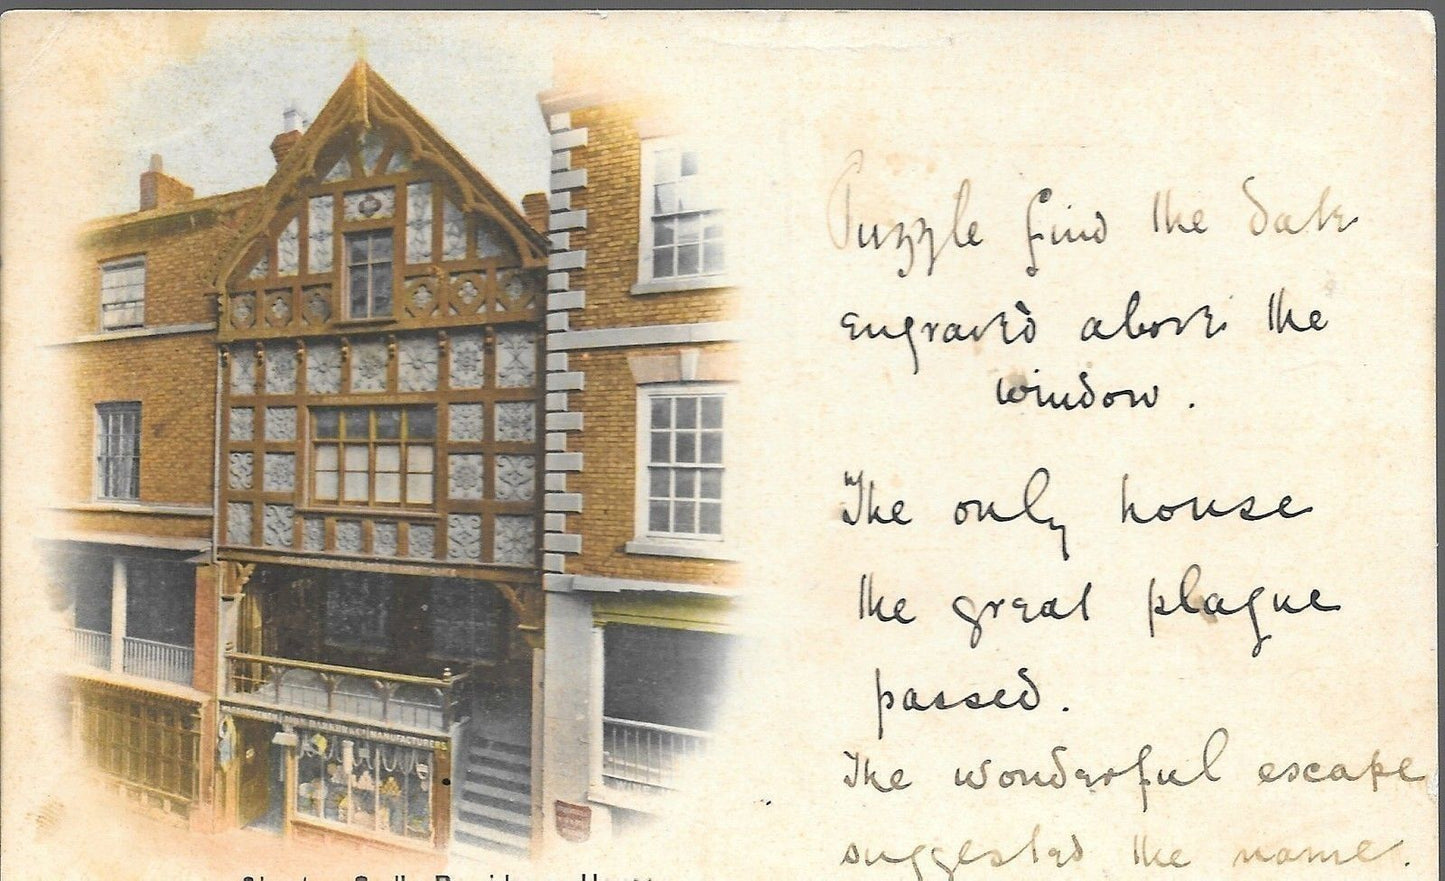 Puzzle find the date
engraved above the
window.
The only house
the great plague
passed.
The wonderful escape
suggested the name.
MANUFACTURERS
Chester, God's Providence House